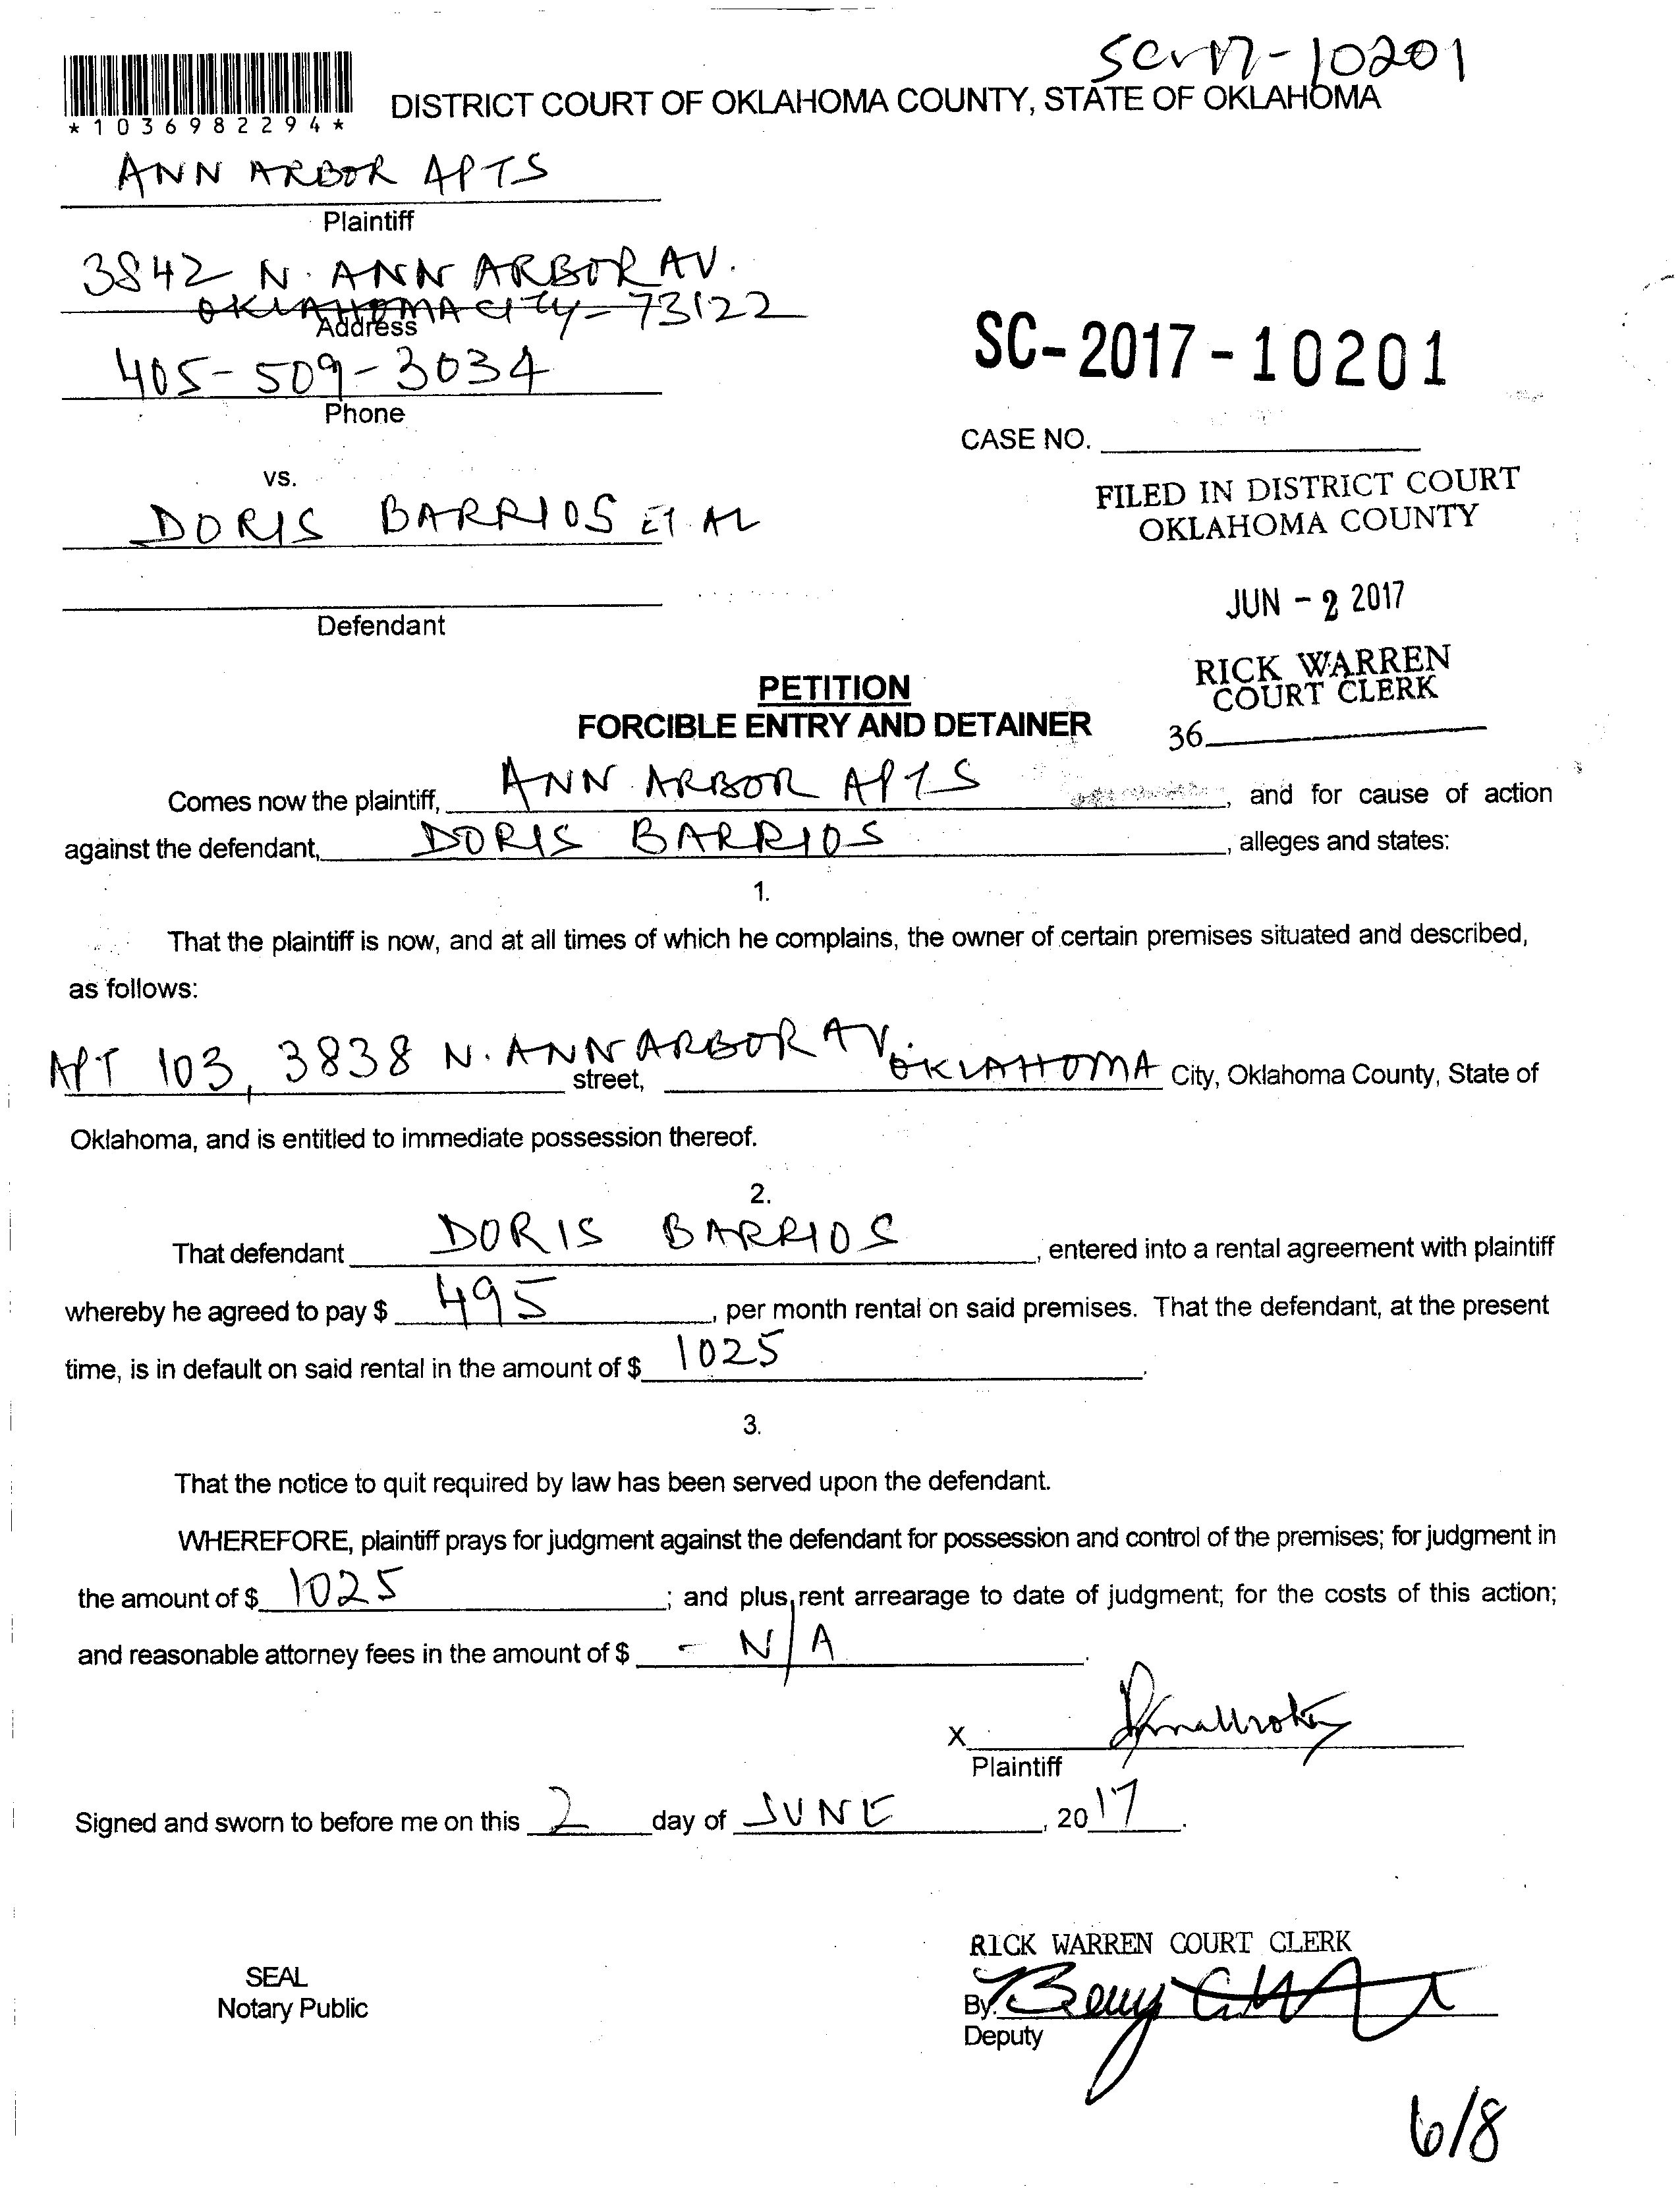 SC-17-10201
*1036982294*
DISTRICT COURT OF OKLAHOMA COUNTY, STATE OF OKLAHOMA
ANN ARBOR APTS
Plaintiff
3842 N. ANN ARBOR AV.
OKLAHOMA CITY - 73122
Address
405-509-3034
Phone
SC-2017-10201
CASE NO.
vs.
DORIS BARRIOS ET AL
FILED IN DISTRICT COURT
OKLAHOMA COUNTY
JUN - 2 2017
Defendant
RICK WARREN
COURT CLERK
36
PETITION
FORCIBLE ENTRY AND DETAINER
Comes now the plaintiff, ANN ARBOR APTS, and for cause of action
against the defendant, DORIS BARRIOS, alleges and states:
1.
That the plaintiff is now, and at all times of which he complains, the owner of certain premises situated and described,
as follows:
APT 103, 3838 N. ANN ARBOR AV. street, OKLAHOMA City, Oklahoma County, State of
Oklahoma, and is entitled to immediate possession thereof.
2.
That defendant DORIS BARRIOS, entered into a rental agreement with plaintiff
whereby he agreed to pay $ 495, per month rental on said premises. That the defendant, at the present
time, is in default on said rental in the amount of $ 1025.
3.
That the notice to quit required by law has been served upon the defendant.
WHEREFORE, plaintiff prays for judgment against the defendant for possession and control of the premises; for judgment in
the amount of $ 1025; and plus rent arrearage to date of judgment; for the costs of this action;
and reasonable attorney fees in the amount of $ - N/A.
X
Plaintiff
Signed and sworn to before me on this 2 day of JUNE, 2017.
RICK WARREN COURT CLERK
SEAL
Notary Public
By:
Deputy
6/8